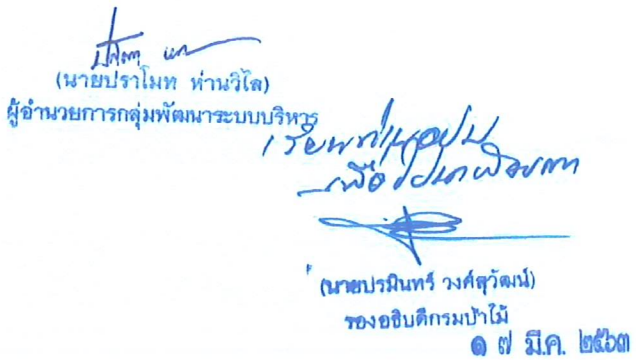 (นายปราโมท ห่านวิไล)
ผู้อำนวยการกลุ่มพัฒนาระบบบริหาร
เรียน
เพื่อโปรด
(นายปรมินทร์ วงศ์สุวัฒน์)
รองอธิบดีกรมป่าไม้
๑๗ มี.ค. ๒๕๖๓